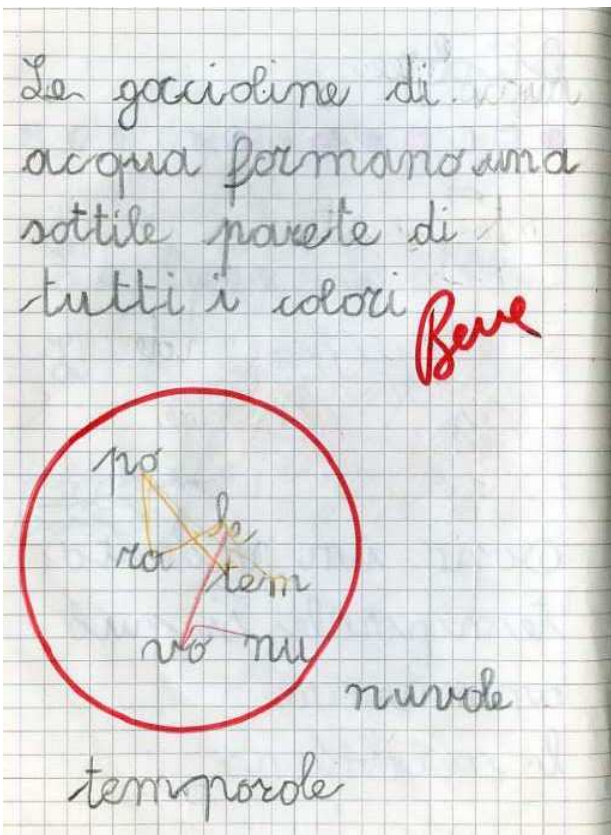 Le goccioline di
acqua formano una
sottile parete di
tutti i colori
Bene
po
le
ro
tem
vo nu
nuvole
temporole